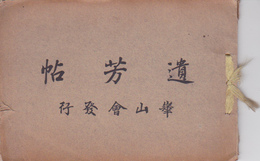 遺芳帖
峯山會發行